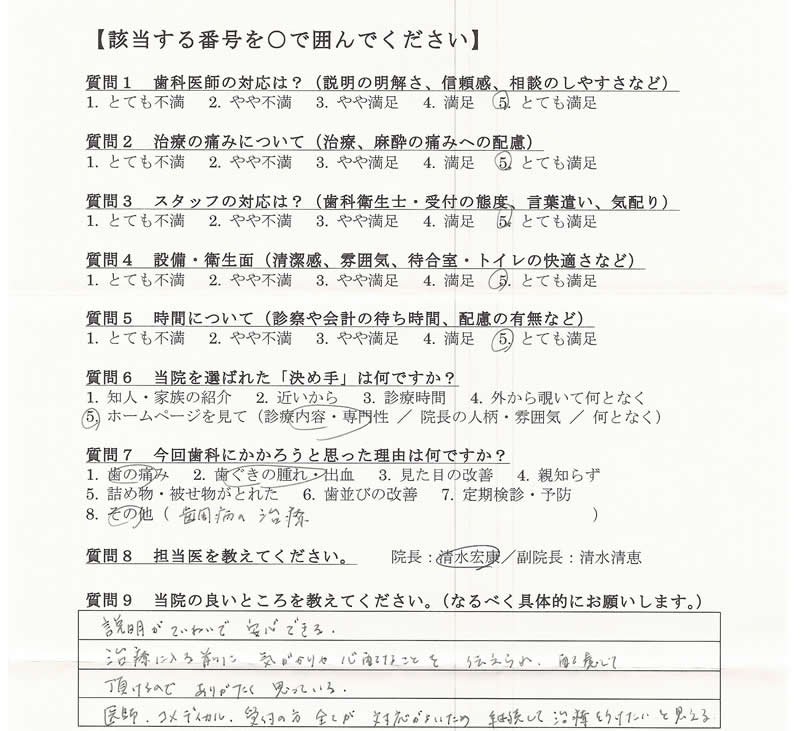 【該当する番号を○で囲んでください】
質問1 歯科医師の対応は？（説明の明解さ、信頼感、相談のしやすさなど）
1. とても不満 2. やや不満 3. やや満足 4. 満足 5. とても満足
質問2 治療の痛みについて（治療、麻酔の痛みへの配慮）
1. とても不満 2. やや不満 3. やや満足 4. 満足 5. とても満足
質問3 スタッフの対応は？（歯科衛生士・受付の態度、言葉遣い、気配り）
1. とても不満 2. やや不満 3. やや満足 4. 満足 5. とても満足
質問4 設備・衛生面（清潔感、雰囲気、待合室・トイレの快適さなど）
1. とても不満 2. やや不満 3. やや満足 4. 満足 5. とても満足
質問5 時間について（診察や会計の待ち時間、配慮の有無など）
1. とても不満 2. やや不満 3. やや満足 4. 満足 5. とても満足
質問6 当院を選ばれた「決め手」は何ですか？
1. 知人・家族の紹介 2. 近いから 3. 診療時間 4. 外から覗いて何となく
5. ホームページを見て（診療内容・専門性 ／ 院長の人柄・雰囲気 ／ 何となく）
質問7 今回歯科にかかろうと思った理由は何ですか？
1. 歯の痛み 2. 歯ぐきの腫れ・出血 3. 見た目の改善 4. 親知らず
5. 詰め物・被せ物がとれた 6. 歯並びの改善 7. 定期検診・予防
8. その他（ 歯周病の治療 ）
質問8 担当医を教えてください。 院長：清水宏康／副院長：清水清恵
質問9 当院の良いところを教えてください。（なるべく具体的にお願いします。）
説明がていねいで 安心できる.
治療に入る前に 気がかりや心配なことを 伝えられ、配慮して
頂けるので ありがたく 思っている.
医師、コメディカル、受付の方 全てが 対応がよいため 継続して 治療を行けたいと思える